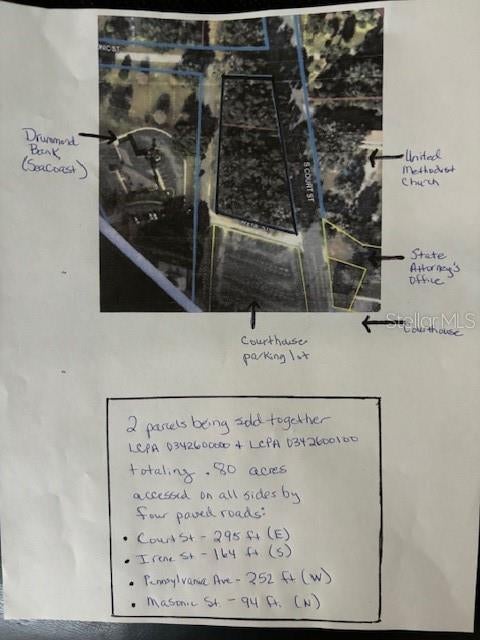 S COURT ST
Drummond
Bank
(Seacoast)
United
Methodist
Church
State
Attorney's
Office
StellarMLS
Courthouse
Courthouse
parking lot
2 parcels being sold together
LCPA 0342600000 + LCPA 0342600100
totaling .80 acres
accessed on all sides by
four paved roads:
• Court St - 295 ft (E)
• Irene St - 164 ft (S)
• Pennsylvania Ave - 252 ft (W)
• Masonic St. - 94 ft. (N)